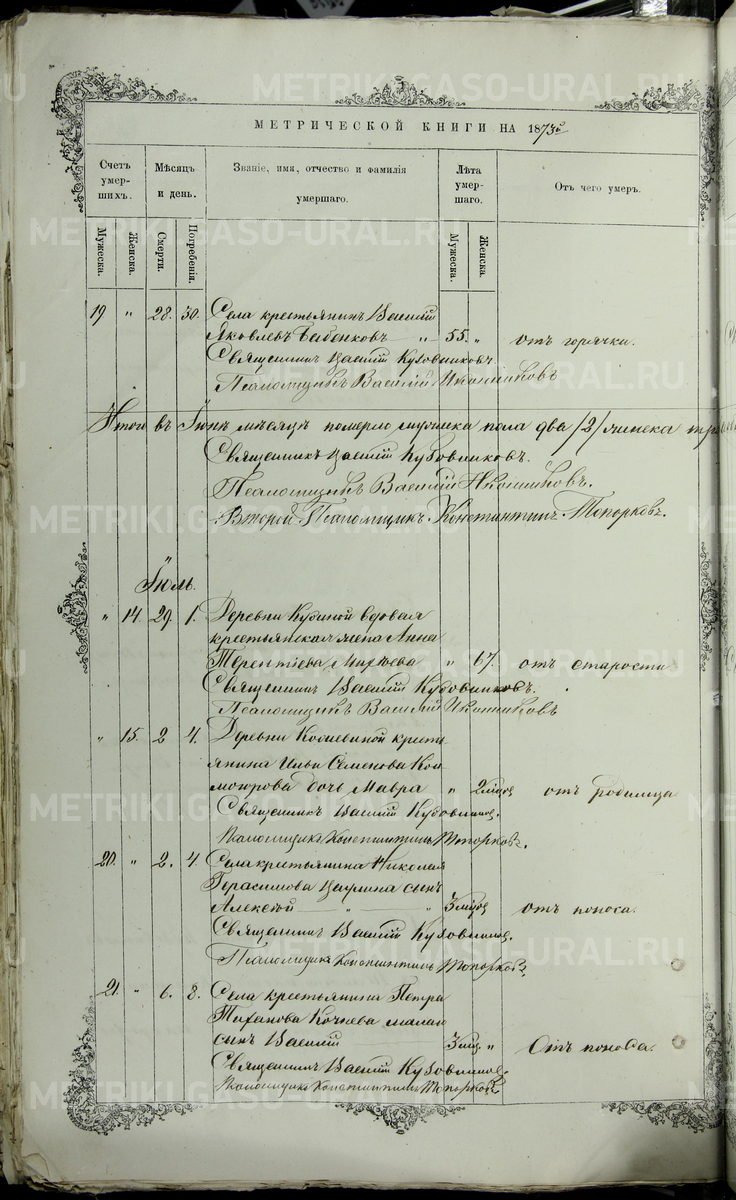 МЕТРИЧЕСКОЙ КНИГИ НА 1873й
Счетъ умер-шихъ.
Мѣсяцъ и день.
Званіе, имя, отчество и фамилія умершаго.
Лѣта умер-шаго.
Отъ чего умеръ.
Мужеска.
Женска.
Смерти.
Погребенія.
Мужеска.
Женска.
19 " 28. 30. Села крестьянинъ Василій
Яковлевъ " 55. " отъ горячки.
Священникъ Василій Кудовниковъ.
Псаломщикъ Василій Иконниковъ
Итого въ Іюнѣ мѣсяцѣ померло мужеска пола два /2/ женска
Священникъ Василій Кудовниковъ.
Псаломщикъ Василій Иконниковъ.
Второй Псаломщикъ Константинъ Топорковъ.
Іюль.
" 14. 29. 1. Деревни вдовая
крестьянская жена Анна
Терентіева " 67. отъ старости
Священникъ Василій Кудовниковъ.
Псаломщикъ Василій Иконниковъ
" 15. 2 4. Деревни кресть
янина Ильи Семенова
дочь Мавра " 2 мѣсяц отъ родимца
Священникъ Василій Кудовниковъ.
Псаломщикъ Константинъ Топорковъ.
20. " 2. 4. Села крестьянина Николая
Герасимова сынъ
Алексѣй " 3 мѣсяц отъ поноса.
Священникъ Василій Кудовниковъ.
Псаломщикъ Константинъ Топорковъ.
21. " 6. 8. Села крестьянина Петра
сынъ Василій 3 мѣс. " Отъ поноса.
Священникъ Василій Кудовниковъ.
Псаломщикъ Константинъ Топорковъ
METRIKI.GASO-URAL.RU